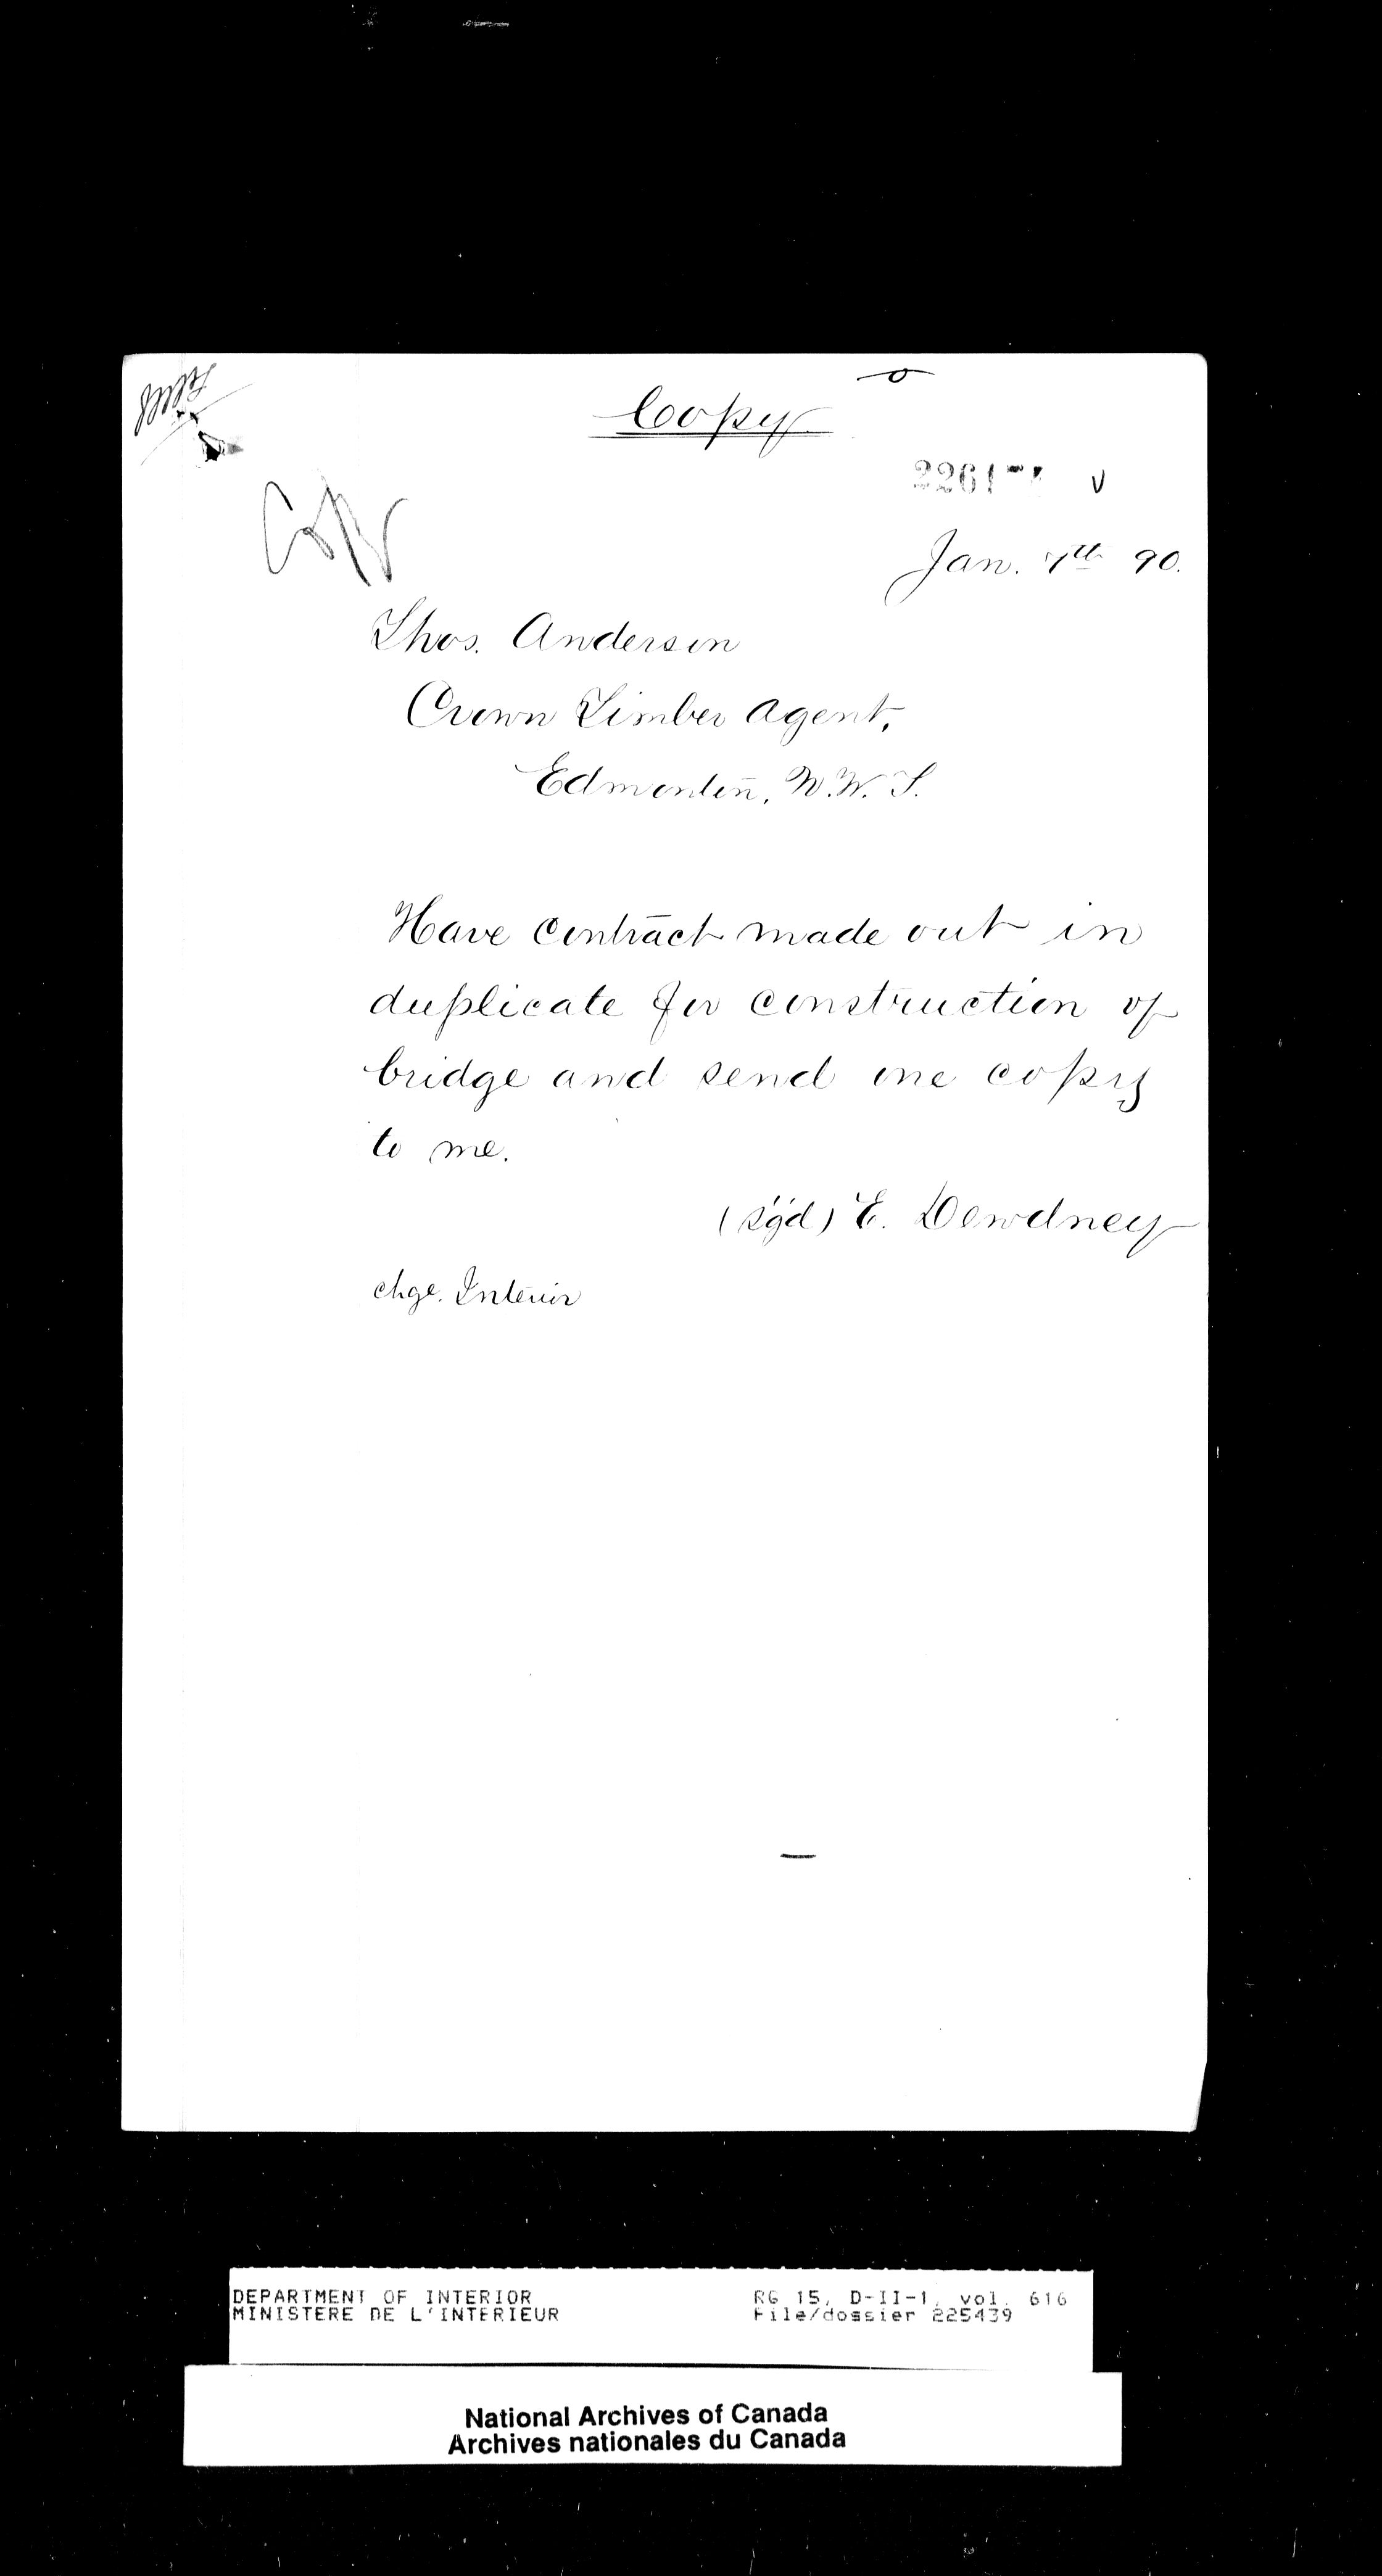 Copy
Copy
Jan. 7th 90.
Thos. Anderson
Crown Timber Agent,
Edmonton, N.W.T.
Have contract made out in
duplicate for construction of
bridge and send one copy
to me.
(sg'd) E. Dewdney
chge. Interior
DEPARTMENT OF INTERIOR
MINISTERE DE L'INTERIEUR
RG 15, D-II-1, vol. 616
File/dossier 225439
National Archives of Canada
Archives nationales du Canada